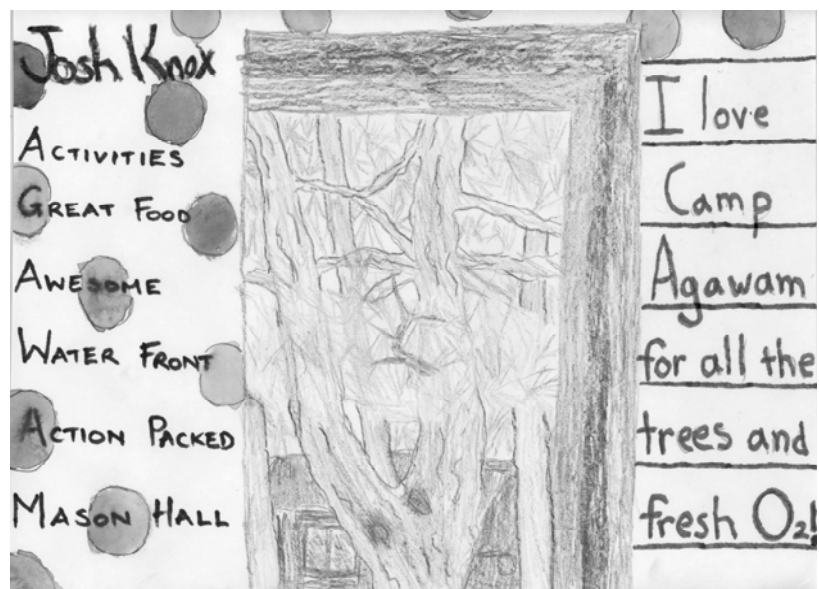 Josh Knox
ACTIVITIES
GREAT FOOD
AWESOME
WATER FRONT
ACTION PACKED
MASON HALL
I love
Camp
Agawam
for all the
trees and
fresh O₂!